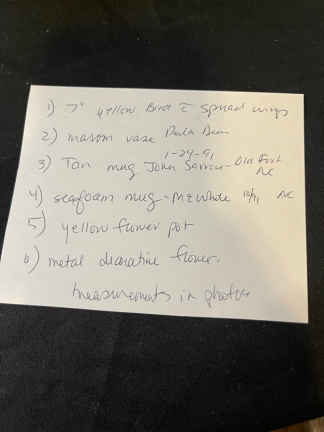 1) 7" yellow Bird c̄ spread wings
2) mason vase
3) Tan mug John 1-24-91 Old Fort NC
4) seafoam mug - McWhite NC
5) yellow flower pot
6) metal decorative flower.
measurements in photos